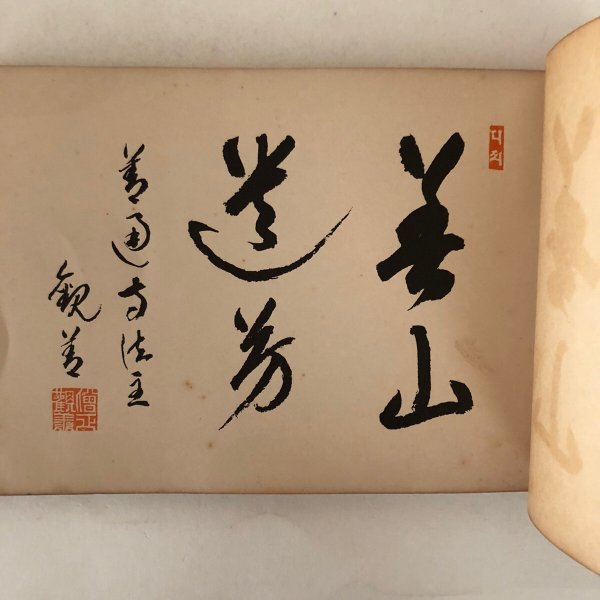 善山
遺芳
善通寺法主
観善
僧正
觀善